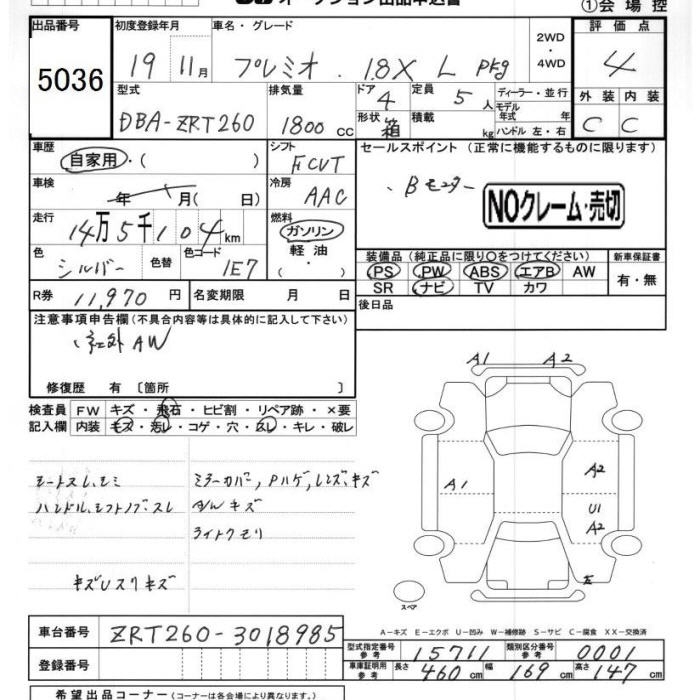 ①会場控
出品番号 初度登録年月 車名・グレード 2WD ・ 4WD 評価点
5036 19 11月 プレミオ . 1.8X L Pkg 4
型式 排気量 ドア 4 定員 5人 ディーラー・並行 外装 内装
DBA-ZRT260 1800 CC 形状 箱 積載 kg モデル年式 年 ハンドル 左・右 C C
車歴 自家用・( ) シフト FCVT セールスポイント (正常に機能するものに限ります)
車検 年 月(日) 冷房 AAC 、Bモニター NOクレーム・売切
走行 14万5千104km 燃料 ガソリン 軽油 ・( )
色 シルバー 色替 色コード 1E7
装備品(純正品に限り○をつけてください) 新車保証書
PS PW ABS エアB AW 有・無
SR ナビ TV カワ
R券 11,970円 名変期限 月 日 後日品
注意事項申告欄(不具合内容等は具体的に記入して下さい)
社外AW
修復歴 有 〔箇所 〕
検査員 FW キズ・飛石・ヒビ割・リペア跡・×要
記入欄 内装 キズ・汚し・コゲ・穴・スレ・キレ・破レ
シートスレ、シミ ミラーカバー,Pハゲ,レンズ,キズ
ハンドル、シフトノブ、スレ A/W キズ
ライトクモリ
キズUスリキズ
A1 A2
A1 A2
U1
A2
E
スペア
A-キズ E-エクボ U-凹み W-補修跡 S-サビ C-腐食 XX-交換済
車台番号 ZRT260-3018985
登録番号
型式指定番号 参考 15711 類別区分番号 参考 0001
車庫証明用 参考 長さ 460cm 幅 169cm 高さ 147cm
希望出品コーナー (コーナーは各会場により異なります。)